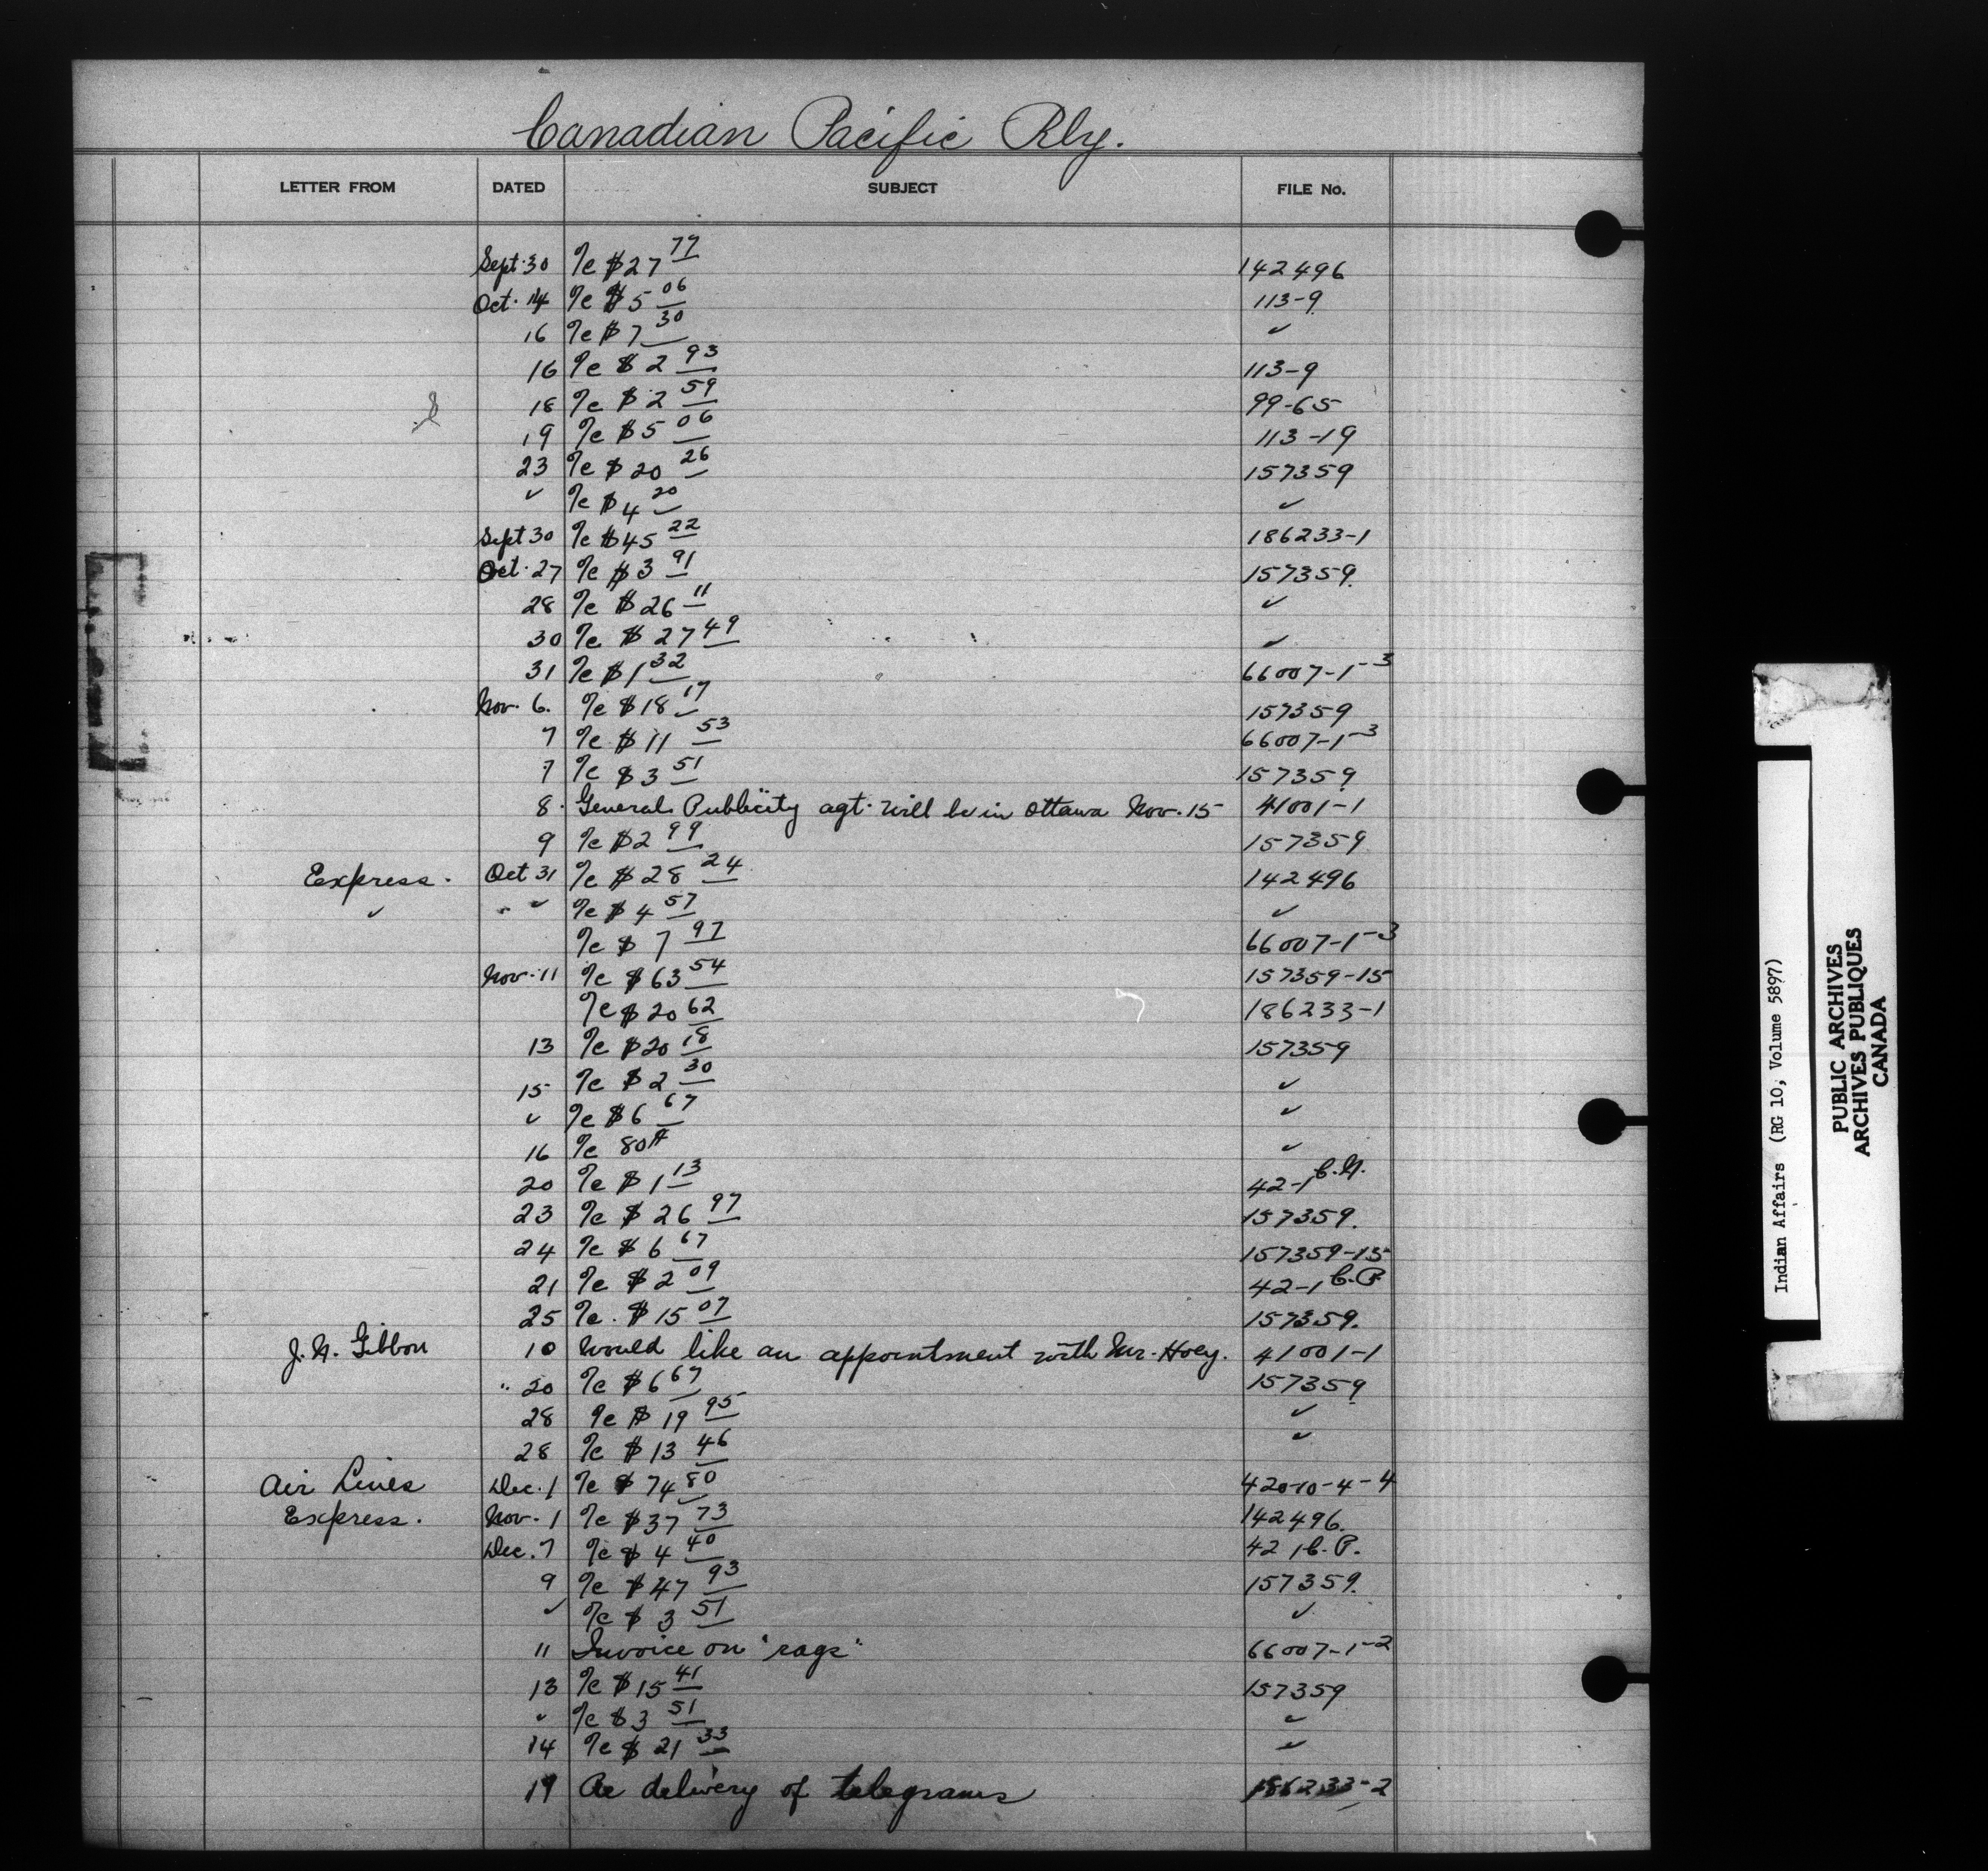 Canadian Pacific Rly.
LETTER FROM DATED SUBJECT FILE No.
Sept. 30 a/c $27 77 142496
Oct. 14 a/c $5 06 113-9
16 a/c $7 30 ✓
16 a/c $2 93 113-9
18 a/c $2 59 99-65
19 a/c $5 06 113-19
23 a/c $20 26 157359
✓ a/c $4 20 ✓
Sept 30 a/c $45 22 186233-1
Oct. 27 a/c $3 91 157359.
28 a/c $26 11 ✓
30 a/c $27 49 ✓
31 a/c $1 32 66007-1-3
Nov. 6. a/c $18 17 157359
7 a/c $11 53 66007-1-3
7 a/c $3 51 157359
8. General Publicity agt. will be in Ottawa Nov. 15 41001-1
9 a/c $2 99 157359
Express. Oct 31 a/c $28 24 142496
✓ " ✓ a/c $4 57 ✓
a/c $7 97 66007-1-3
Nov. 11 a/c $63 54 157359-15
a/c $20 62 186233-1
13 a/c $20 18 157359
15 a/c $2 30 ✓
✓ a/c $6 67 ✓
16 a/c 80¢ ✓
20 a/c $1 13 42-1 C.N.
23 a/c $26 97 157359.
24 a/c $6 67 157359-15
21 a/c $2 09 42-1 C.P.
25 a/c. $15 07 157359.
J. N. Gibbon 10 Would like an appointment with Mr. Hoey. 41001-1
" 20 a/c $6 67 157359
28 a/c $19 95 ✓
28 a/c $13 46 ✓
Air Lines Dec. 1 a/c $74 80 420-10-4-4
Express. Nov. 1 a/c $37 73 142496.
Dec. 7 a/c $4 40 42 1 C.P.
9 a/c $47 93 157359.
✓ a/c $3 51 ✓
11 Invoice on "rags" 66007-1-2
13 a/c $15 41 157359
✓ a/c $3 51 ✓
14 a/c $21 33 ✓
19 Re delivery of telegrams 186233-2
Indian Affairs (RG 10, Volume 5897)
PUBLIC ARCHIVES
ARCHIVES PUBLIQUES
CANADA